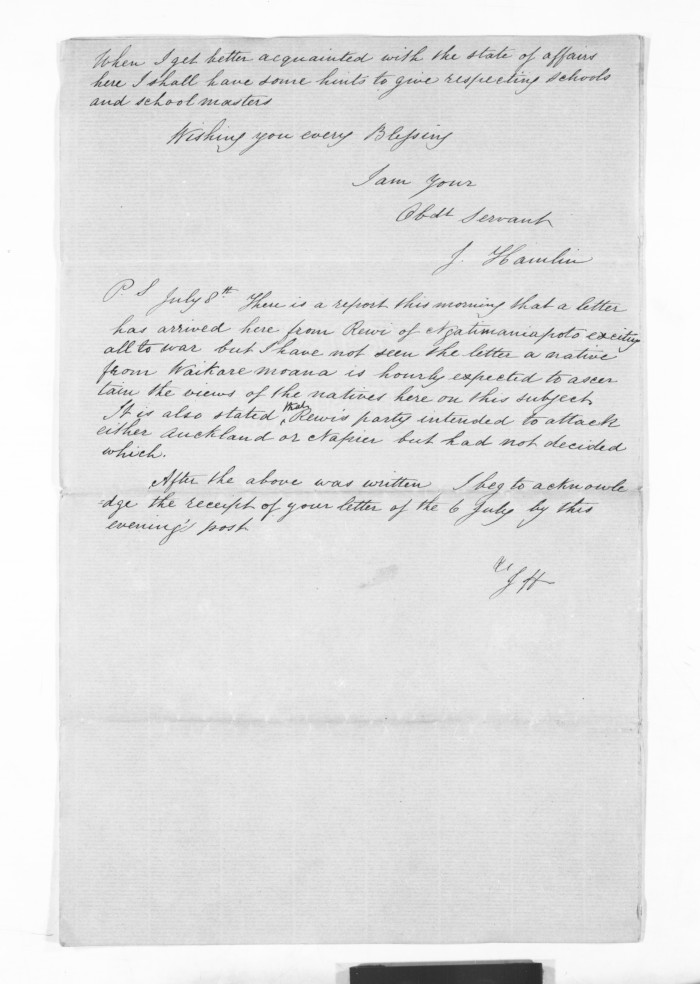 When I get better acquainted with the state of affairs
here I shall have some hints to give respecting schools
and school masters
Wishing you every Blessing
I am Your
Obdt Servant
J. Hamlin
P. S July 8th There is a report this morning that a letter
has arrived here from Rewi of Ngatimaniapoto exciting
all to war but I have not seen the letter a native
from Waikare moana is hourly expected to ascer
tain the views of the natives here on this subject
It is also stated that Rewis party intended to attack
either Auckland or Napier but had not decided
which.
After the above was written I beg to acknowle
=dge the receipt of your letter of the 6 July by this
evening's post
J H